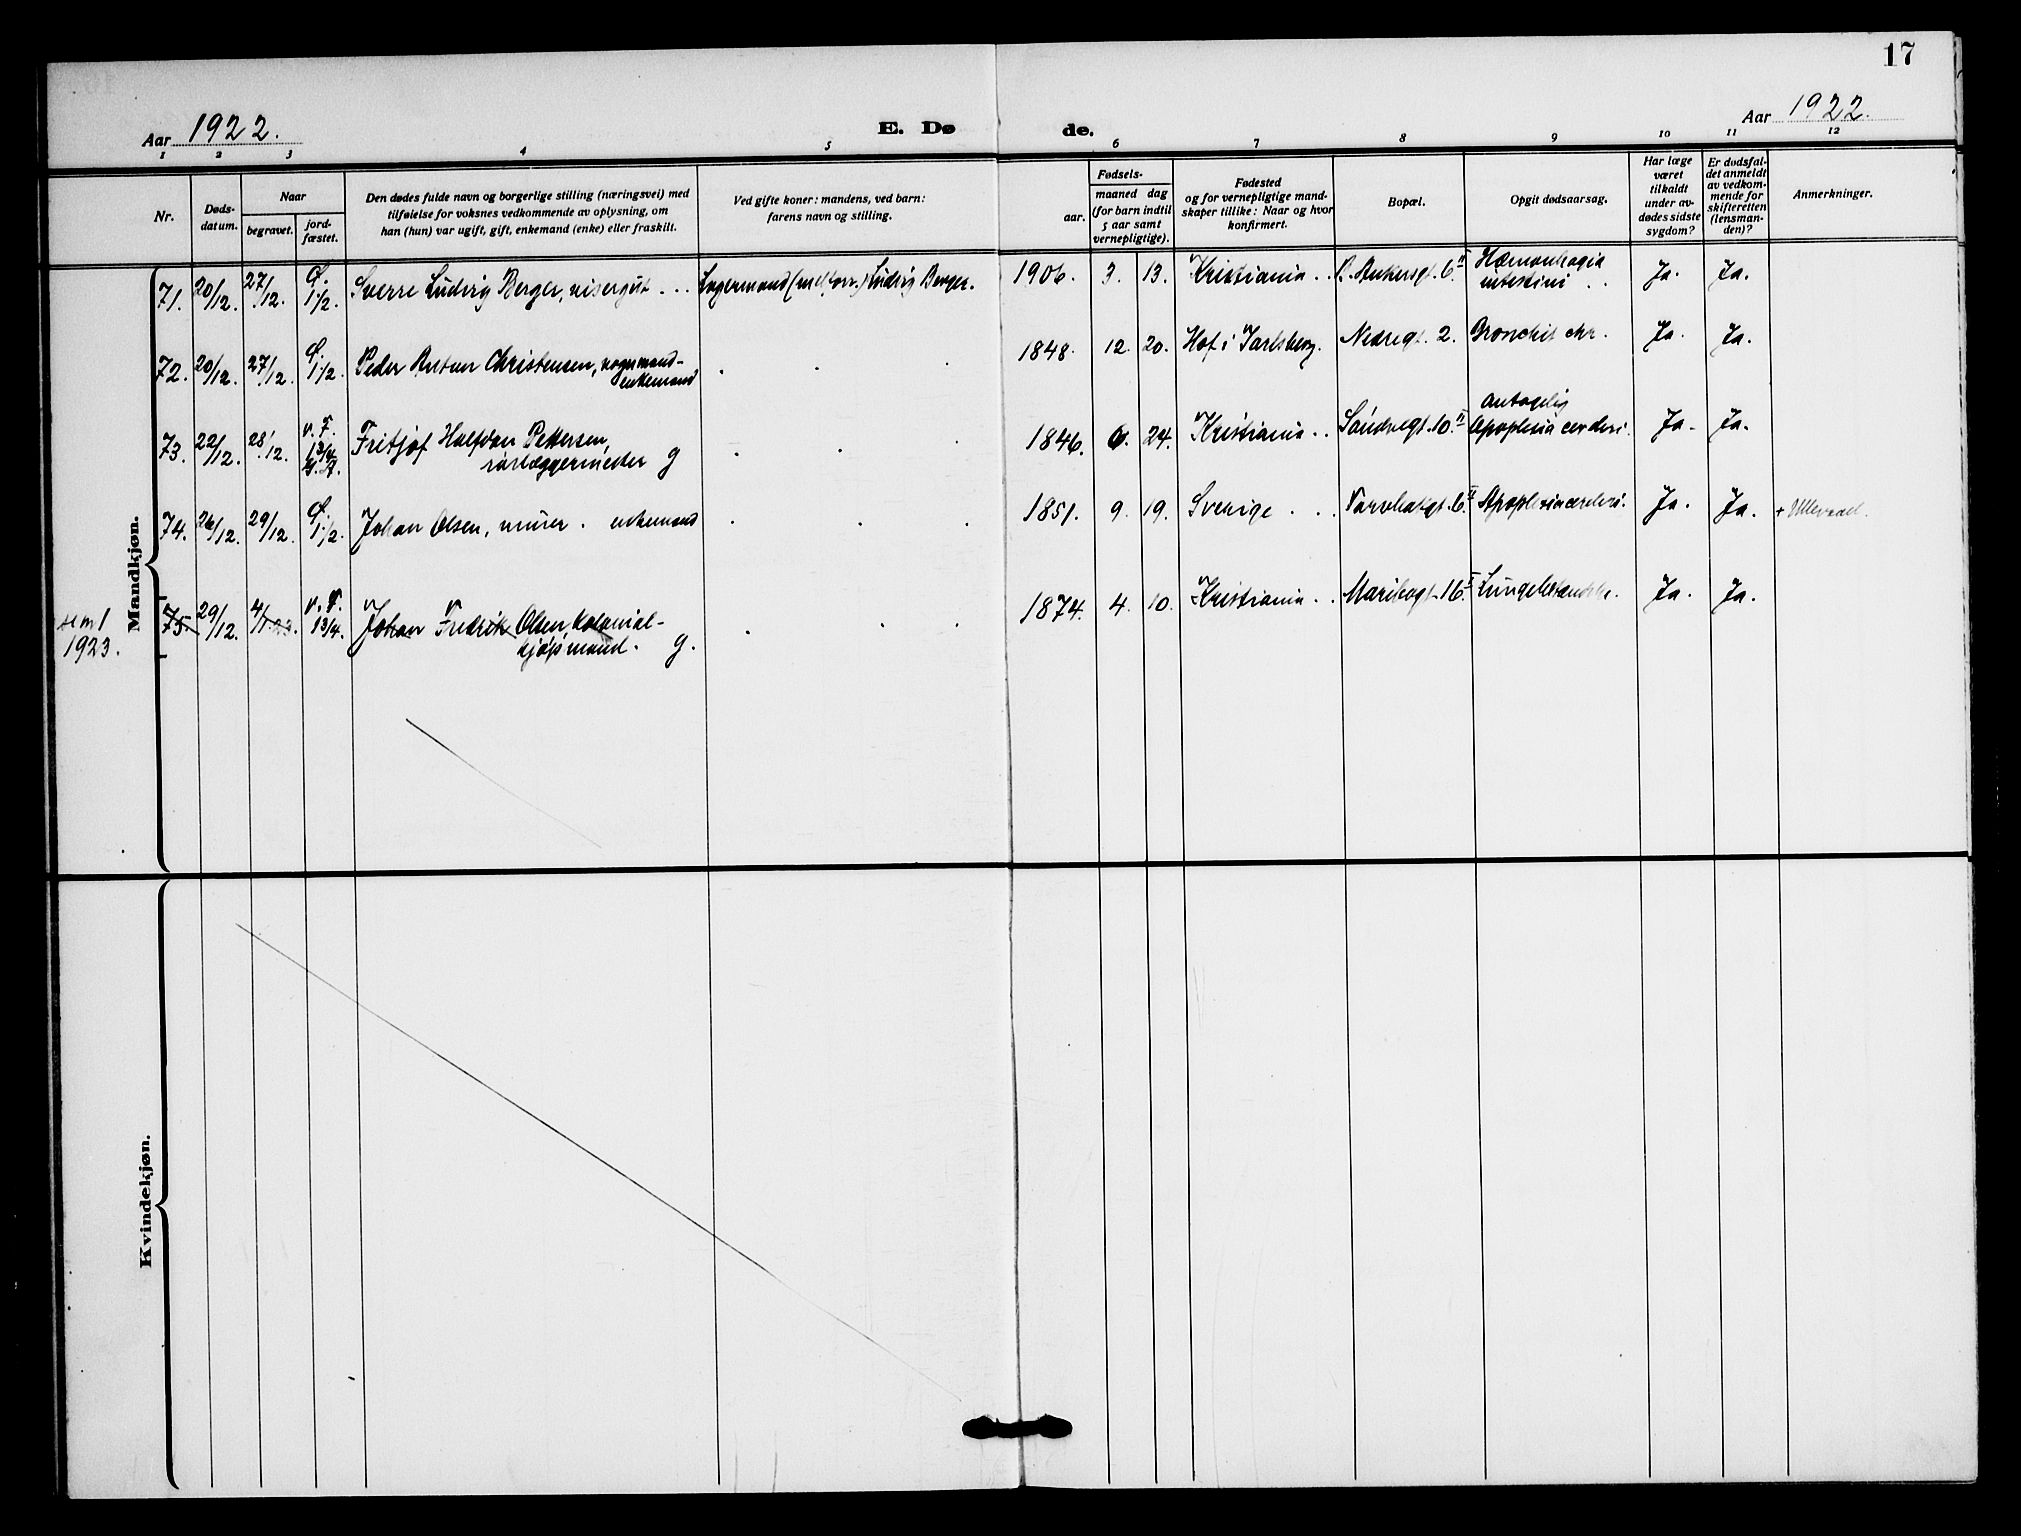 17
Aar 1922.
E. Dø de.
Aar 1922.
1 2 3 4 5 6 7 8 9 10 11 12
Nr.
Døds-
datum.
Naar
begravet.
jord-
fæstet.
Den dødes fulde navn og borgerlige stilling (næringsvei) med
tilføielse for voksnes vedkommende av oplysning, om
han (hun) var ugift, gift, enkemand (enke) eller fraskilt.
Ved gifte koner: mandens, ved barn:
farens navn og stilling.
Fødsels-
aar.
maaned dag
(for barn indtil
5 aar samt
vernepligtige).
Fødested
og for vernepligtige mand-
skaper tillike: Naar og hvor
konfirmert.
Bopæl.
Opgit dødsaarsag.
Har læge
været
tilkaldt
under av-
dødes sidste
sygdom?
Er dødsfal-
det anmeldt
av vedkom-
mende for
skifteretten
(lensman-
den)?
Anmerkninger.
Mandkjøn.
71. 20/12. 27/12. Ø. 1/2. Sverre Ludvig Berger, visergut Lagermand Ludvig Berger. 1906. 3. 13. Kristiania. Ankersgt. 6 II Hæmorrhagia
intestini Ja. Ja.
72. 20/12. 27/12. Ø. 1/2. Peder Anton Christensen, vognmand-
enkemand 1848. 12. 20. Hof i Jarlsberg. Nedregt. 2. Bronchit chr. Ja. Ja.
73. 22/12. 28/12. v. F. 13/4. Fritjof Halfdan Pettersen,
rørlæggermester g 1846. 6. 24. Kristiania. Søndregt. 10 II antagelig
Apoplexia cerebri. Ja. Ja.
74. 26/12. 29/12. Ø. 1/2. Johan Olsen, murer. enkemand 1851. 9. 19. Sverige. 6. II Apoplexia cerebri. Ja. Ja. + Ullevaal.
se nr 1
1923.
75. 29/12. 4/1.23. v. F. 13/4. Johan Fredrik Olsen, kolonial-
kjøpmand. g. 1874. 4. 10. Kristiania. Maribogt. 16 I Lungebetændelse. Ja. Ja.
Kvindekjøn.